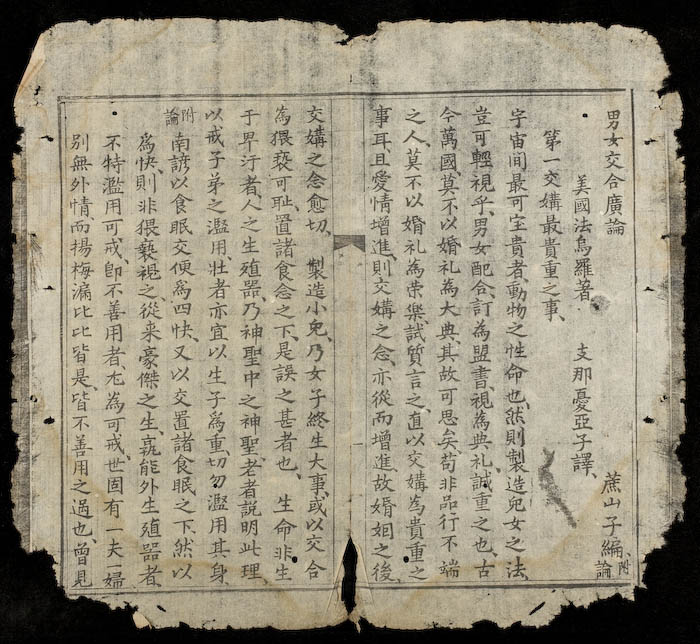 男女交合廣論
美國法烏羅著 支那憂亞子譯 蔗山子編附論
第一交媾最貴重之事
宇宙間最可宝貴者、動物之性命也、然則製造兒女之法、
豈可輕視乎、男女配合、訂為盟書、視為典礼、誠重之也、古
今萬國、莫不以婚礼為大典、其故可思矣、苟非品行不端
之人、莫不以婚礼為荣樂、試質言之、直以交媾為貴重之
事耳、且愛情增進、則交媾之念、亦從而增進、故婚姻之後、
交媾之念愈切、 製造小兒、乃女子終生大事、或以交合
為猥褻可耻、置諸食念之下、是誤之甚者也、 生命非生
于卑汙者、人之生殖器、乃神聖中之神聖、老者說明此理、
以戒子弟之濫用、壯者亦宜以生子為重、切勿濫用其身
附論 南諺以食眠交便為四快、又以交置諸食眠之下、然以
為快、則非猥褻視之、從来豪傑之生、孰能外生殖器者、
不特濫用可戒、卽不善用者、尤為可戒、世固有一夫一婦
别無外情、而揚梅瀰比比皆是、皆不善用之過也、曾見